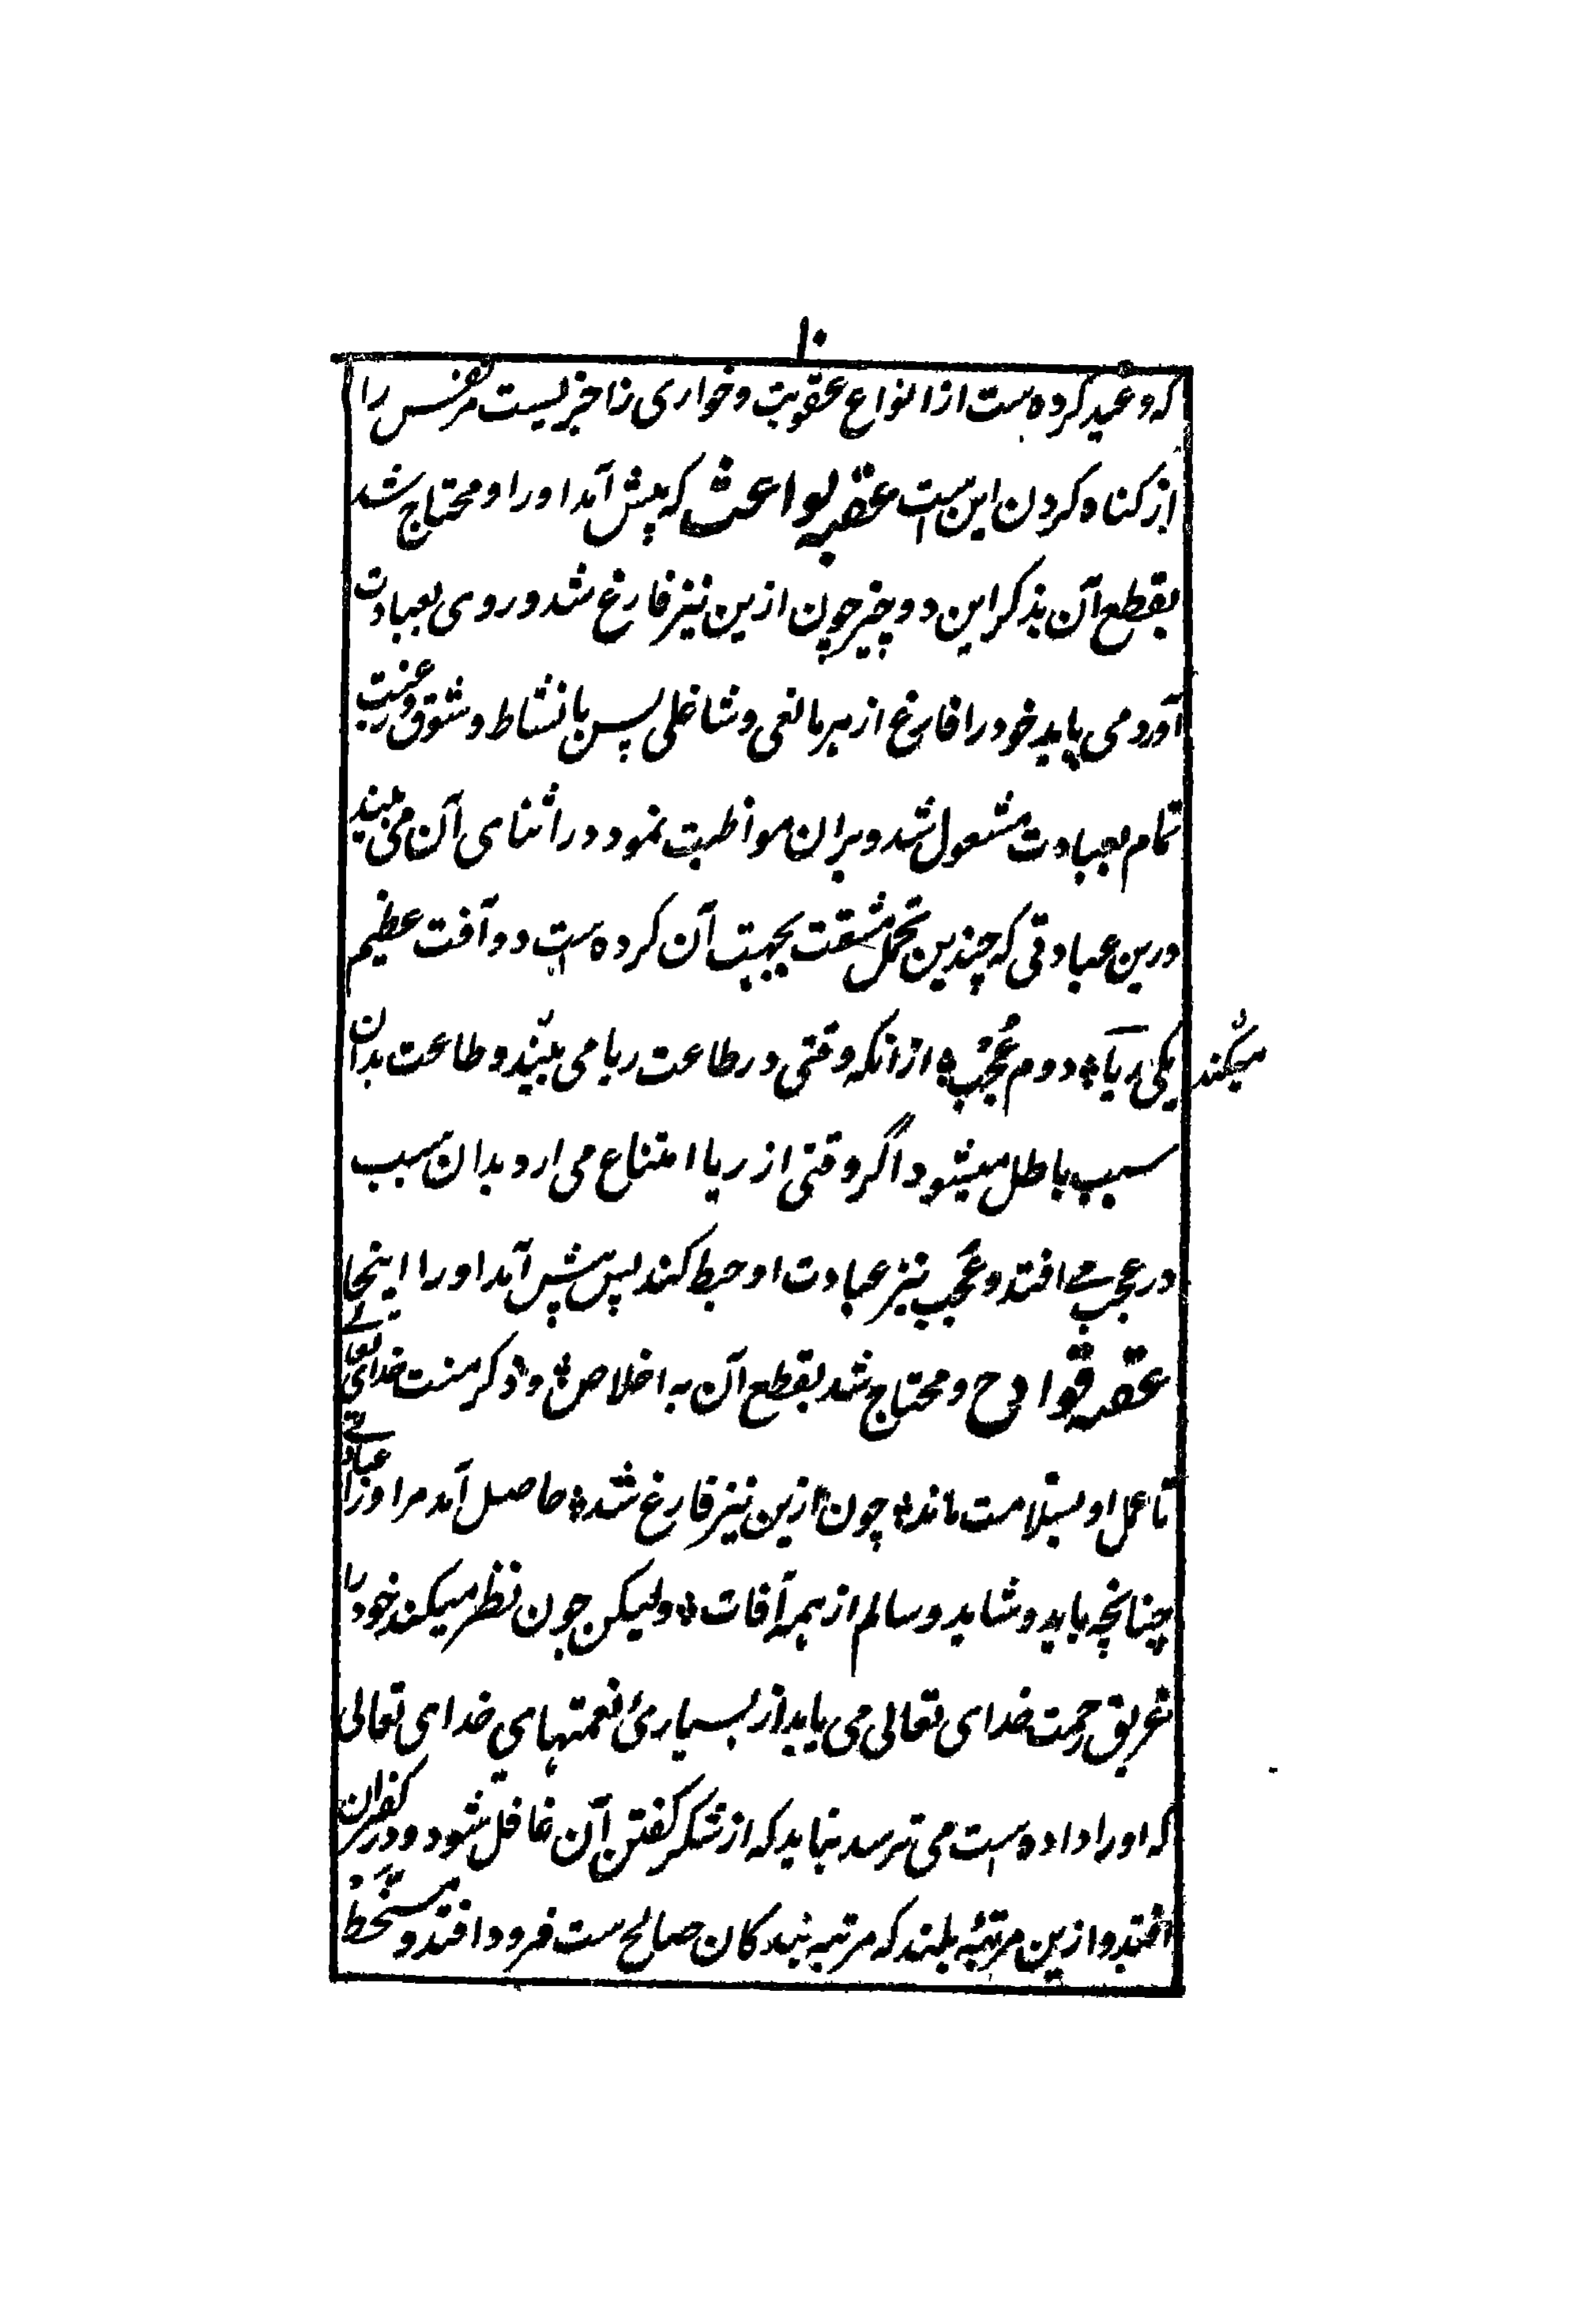 ۱۰
که وعید کرده است از انواع عقوبت و خواری زاجریست مر نفس را
از کناه کردن این است عقبه بواعث که پیش آمد اورا و محتاج شد
بقطع آن بذکر این دو چیز چون ازین نیز فارغ شد و روی بعبادت
آورد می یابد خود را فارغ از هر مانعی و شاغلی پس با نشاط و شوق و رغبت
تمام بعبادت مشغول شد و بران مواظبت نمود در اثنای آن می بیند
درین عبادتی که چندین تحمل مشقت بجهت آن کرده است دو آفت عظیم
یکی ریا دوم عُجب ازانکه وقتی در طاعت ریا می بیند و طاعت بدان
میکند
سبب باطل میشود اگر وقتی از ریا امتناع می ارد بدان سبب
در عجب می افتد و عجب نیز عبادت او حبط کند پس پیش آمد اورا اینجا
عقبه قوادح و محتاج شد بقطع آن به اخلاص و ذکر منت خدای تعالی
تا عمل او بسلامت ماند چون ازین نیز فارغ شد حاصل آمد مر اورا عبادتی
چنانچه باید و شاید و سالم از همه آفات ولیکن چون نظر میکند خود را
غریق رحمت خدای تعالی می یابد از بسیاری نعمتهای خدای تعالی
که اورا داده است می ترسد نباید که از شکر کفتن آن غافل شود و در کفران
افتد و ازین مرتبه بلند که مرتبه بندکان صالح ست فرود افتد و مستحق سخط